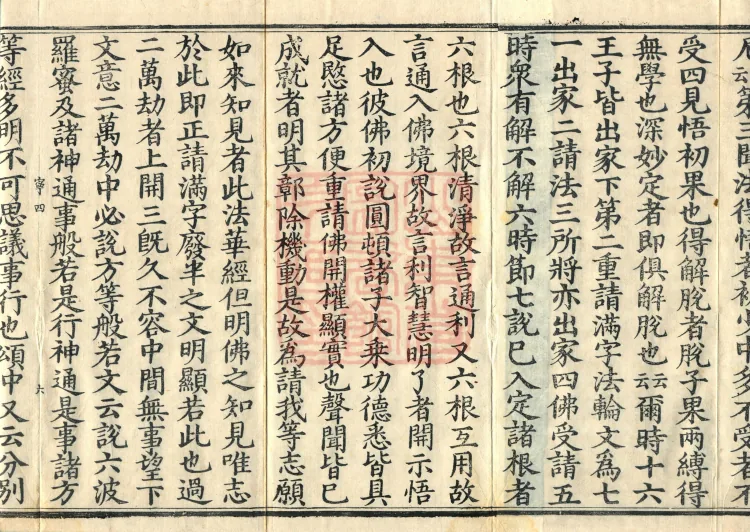 尼云第三聞法得悟者初心中多不受若不
受四見悟初果也得解脫者脫子果兩縛得
無學也深妙定者即俱解脫也云云爾時十六
王子皆出家下第二重請滿字法輪文為七
一出家二請法三所將亦出家四佛受請五
時眾有解不解六時節七說已入定諸根者
六根也六根清淨故言通利又六根互用故
言通入佛境界故言利智慧明了者開示悟
入也彼佛初說圓頓諸子大乘功德悉皆具
足愍諸方便重請佛開權顯實也聲聞皆已
成就者明其鄣除機動是故為請我等志願
如來知見者此法華經但明佛之知見唯志
於此即正請滿字廢半之文明顯若此也過
二萬劫者上開三既久不容中間無事望下
文意二萬劫中必說方等般若文云說六波
羅蜜及諸神通事般若是行神通是事諸方
寧四 六
等經多明不可思議事行也頌中又云分別